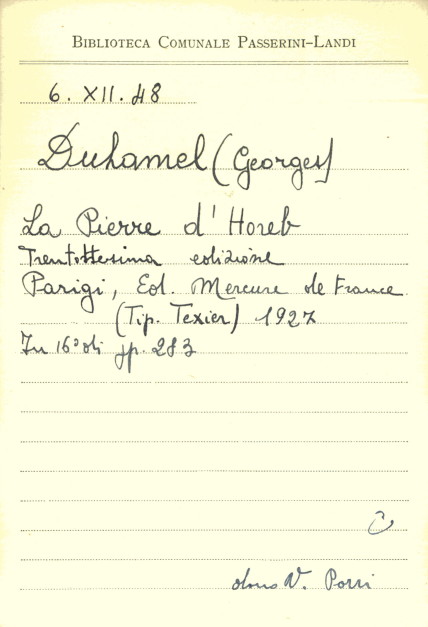 BIBLIOTECA COMUNALE PASSERINI-LANDI
6. XII. 48
Duhamel (Georges)
La Pierre d' Horeb
Trentottesima edizione
Parigi, Ed. Mercure de France
(Tip. Texier) 1927
In 16° di pp. 283
C
dono V. Porri